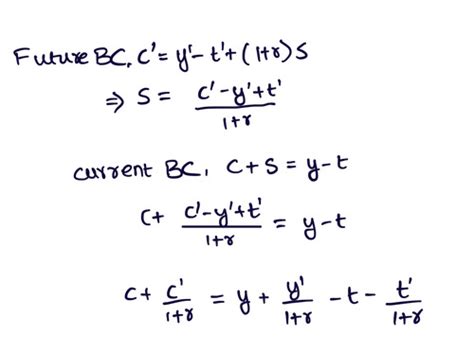 Future BC, c' = y' - t' + (1+r) S
⇒ S = (c' - y' + t') / (1+r)
current BC, C + S = y - t
C + (c' - y' + t') / (1+r) = y - t
C + c' / (1+r) = y + y' / (1+r) - t - t' / (1+r)